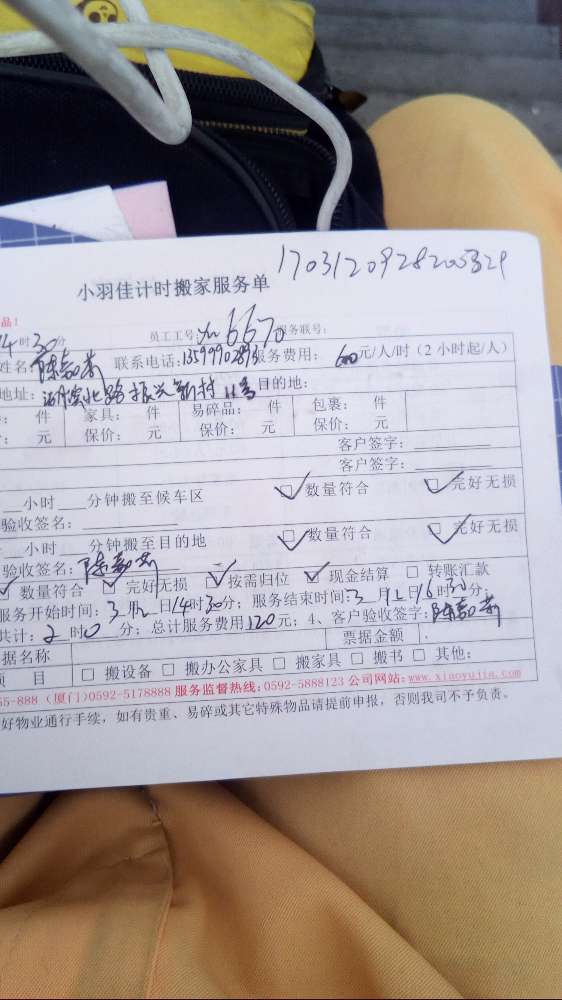 1703120928205329
小羽佳计时搬家服务单
品！
4时30分 员工工号: 6670 服务联号:
姓名 联系电话: 服务费用: 60元/人/时（2 小时起/人）
地址: 滨北路振兴新村 目的地:
: 件 家具: 件 易碎品: 件 包裹: 件
: 元 保价: 元 保价: 元 保价: 元
客户签字:
客户签字:
小时 分钟搬至候车区 数量符合 完好无损
验收签名:
小时 分钟搬至目的地 数量符合 完好无损
验收签名:
数量符合 完好无损 按需归位 现金结算 转账汇款
服务开始时间: 3月12日14时30分; 服务结束时间: 3月12日16时30分;
共计: 2时0分; 总计服务费用120元; 4、客户验收签字:
据名称 票据金额
项 目 搬设备 搬办公家具 搬家具 搬书 其他:
55-888 (厦门)0592-5178888 服务监督热线: 0592-5888123 公司网站: www.xiaoyujia.com
好物业通行手续，如有贵重、易碎或其它特殊物品请提前申报，否则我司不予负责。